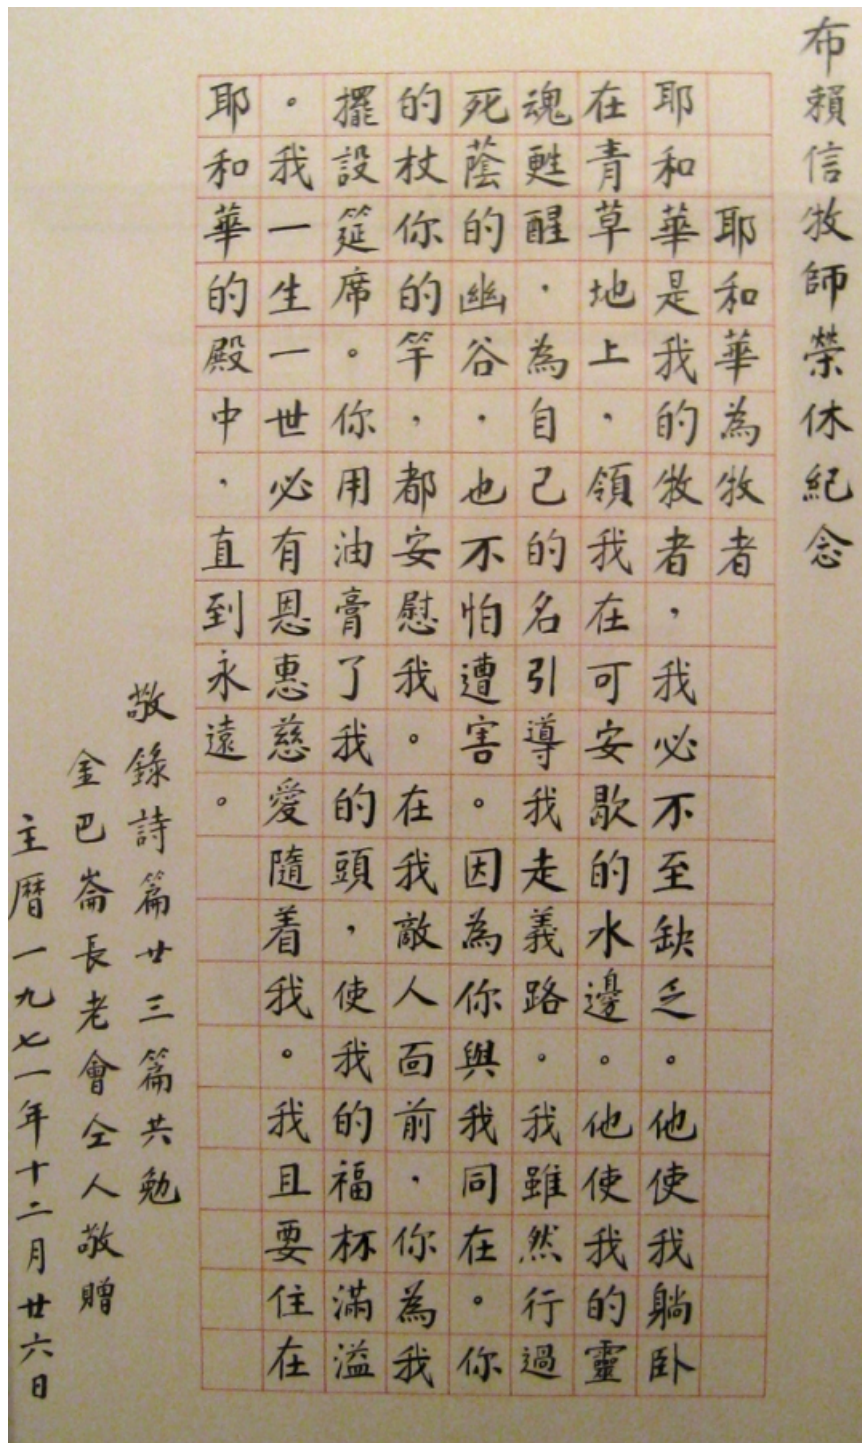 布賴信牧師榮休紀念
耶和華為牧者
耶和華是我的牧者，我必不至缺乏。他使我躺卧
在青草地上，領我在可安歇的水邊。他使我的靈
魂甦醒，為自己的名引導我走義路。我雖然行過
死蔭的幽谷，也不怕遭害。因為你與我同在。你
的杖你的竿，都安慰我。在我敵人面前，你為我
擺設筵席。你用油膏了我的頭，使我的福杯滿溢
。我一生一世必有恩惠慈愛隨着我。我且要住在
耶和華的殿中，直到永遠。
敬錄詩篇廿三篇共勉
金巴崙長老會仝人敬贈
主曆一九七一年十二月廿六日